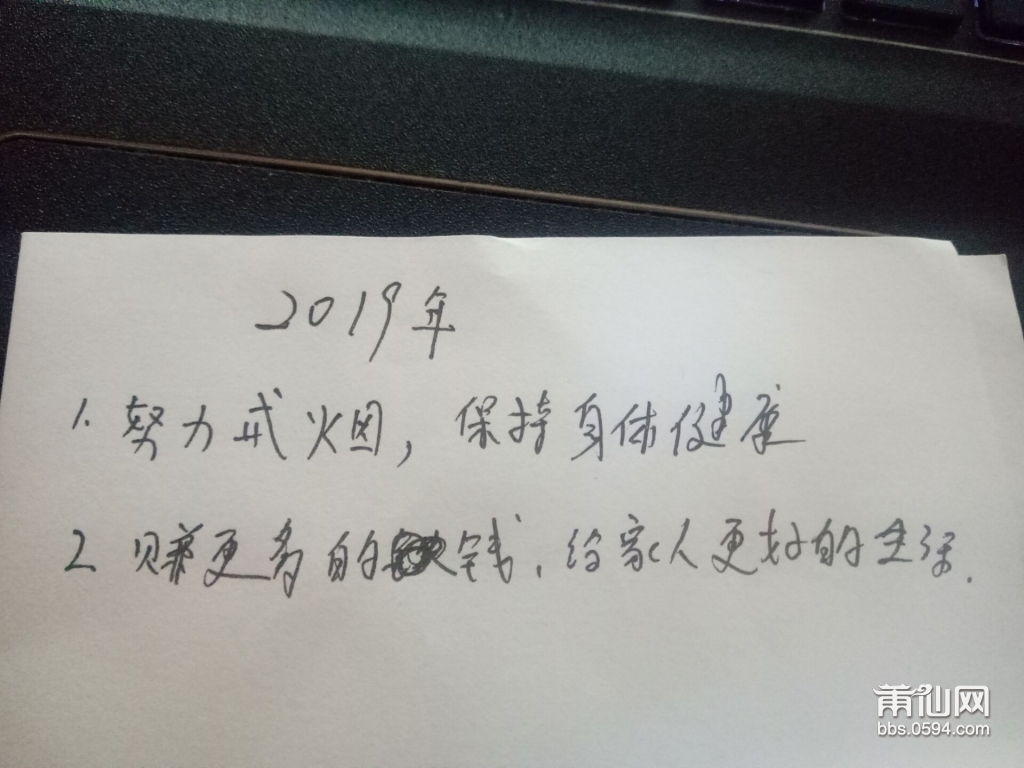 2019年
1. 努力戒烟，保持身体健康
2 赚更多的钱，给家人更好的生活.
莆仙网
bbs.0594.com